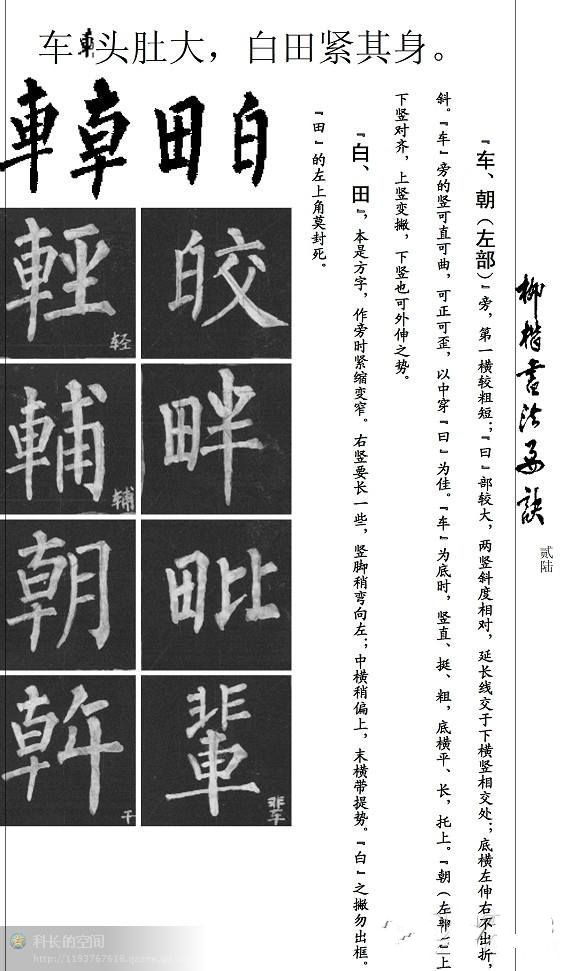 车頭头肚大，白田紧其身。
柳楷书法要诀
贰陆
『车、朝（左部）』旁，第一横较粗短；『曰』部较大，两竖斜度相对，延长线交于下横竖相交处；底横左伸右不出折，
斜。『车』旁的竖可直可曲，可正可歪，以中穿『曰』为佳。『车』为底时，竖直、挺、粗，底横平、长，托上。『朝（左部）』上
下竖对齐，上竖变撇，下竖也可外伸之势。
『白、田』，本是方字，作旁时紧缩变窄。右竖要长一些，竖脚稍弯向左；中横稍偏上，末横带提势。『白』之撇勿出框。
『田』的左上角莫封死。
車 田 白
輕 轻 皎
輔 辅 畔
朝 毗
干 輩
科长的空间